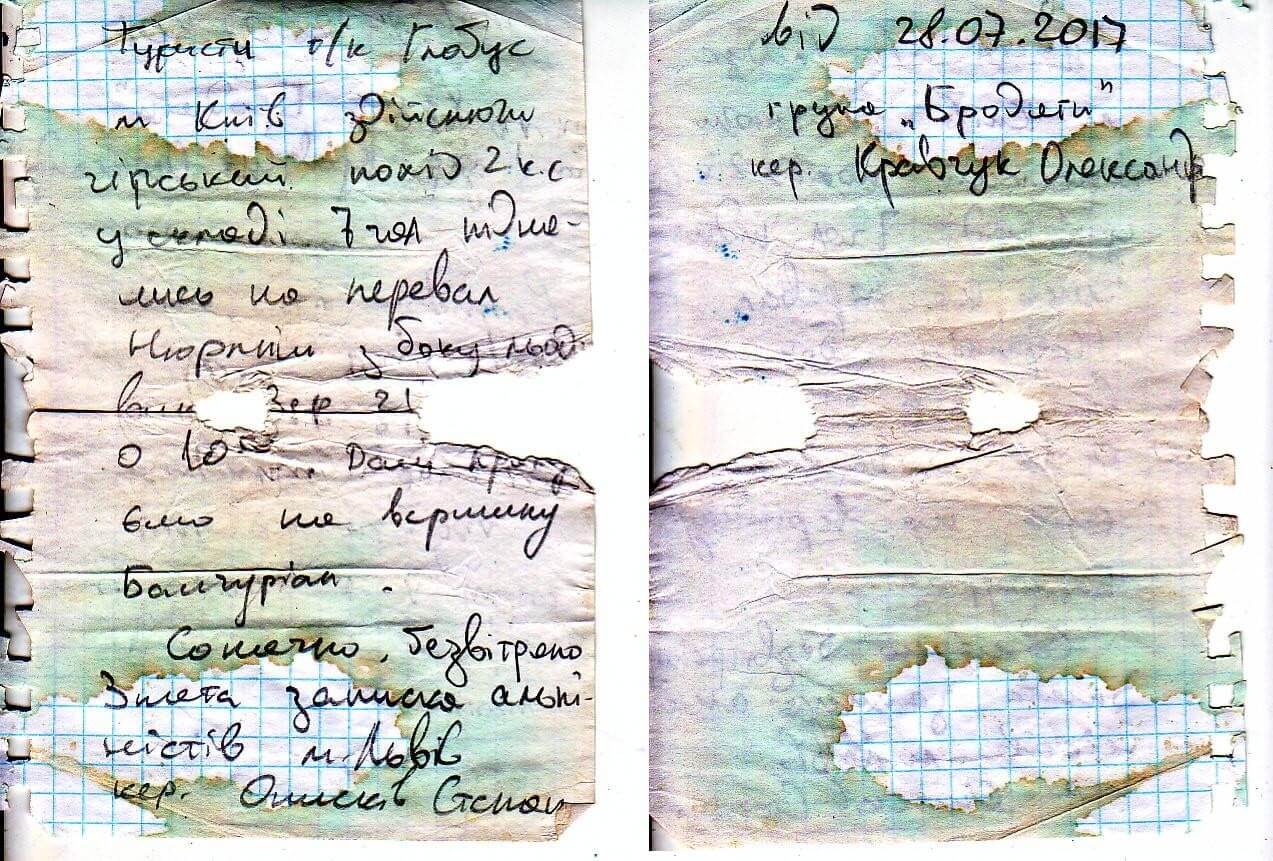 Туристи т/к Глобус
м Київ здійснюють
гірський похід 2 к.с
у складі 7 чол підня-
лись на перевал
з боку льод
о 10⁰⁰. Далі пряму
ємо на вершину
Сонячно, безвітряно
Знята записка альпі-
ністів м. Львів
кер. Степан
від 28.07.2017
група „Бродяги"
кер. Кравчук Олександр